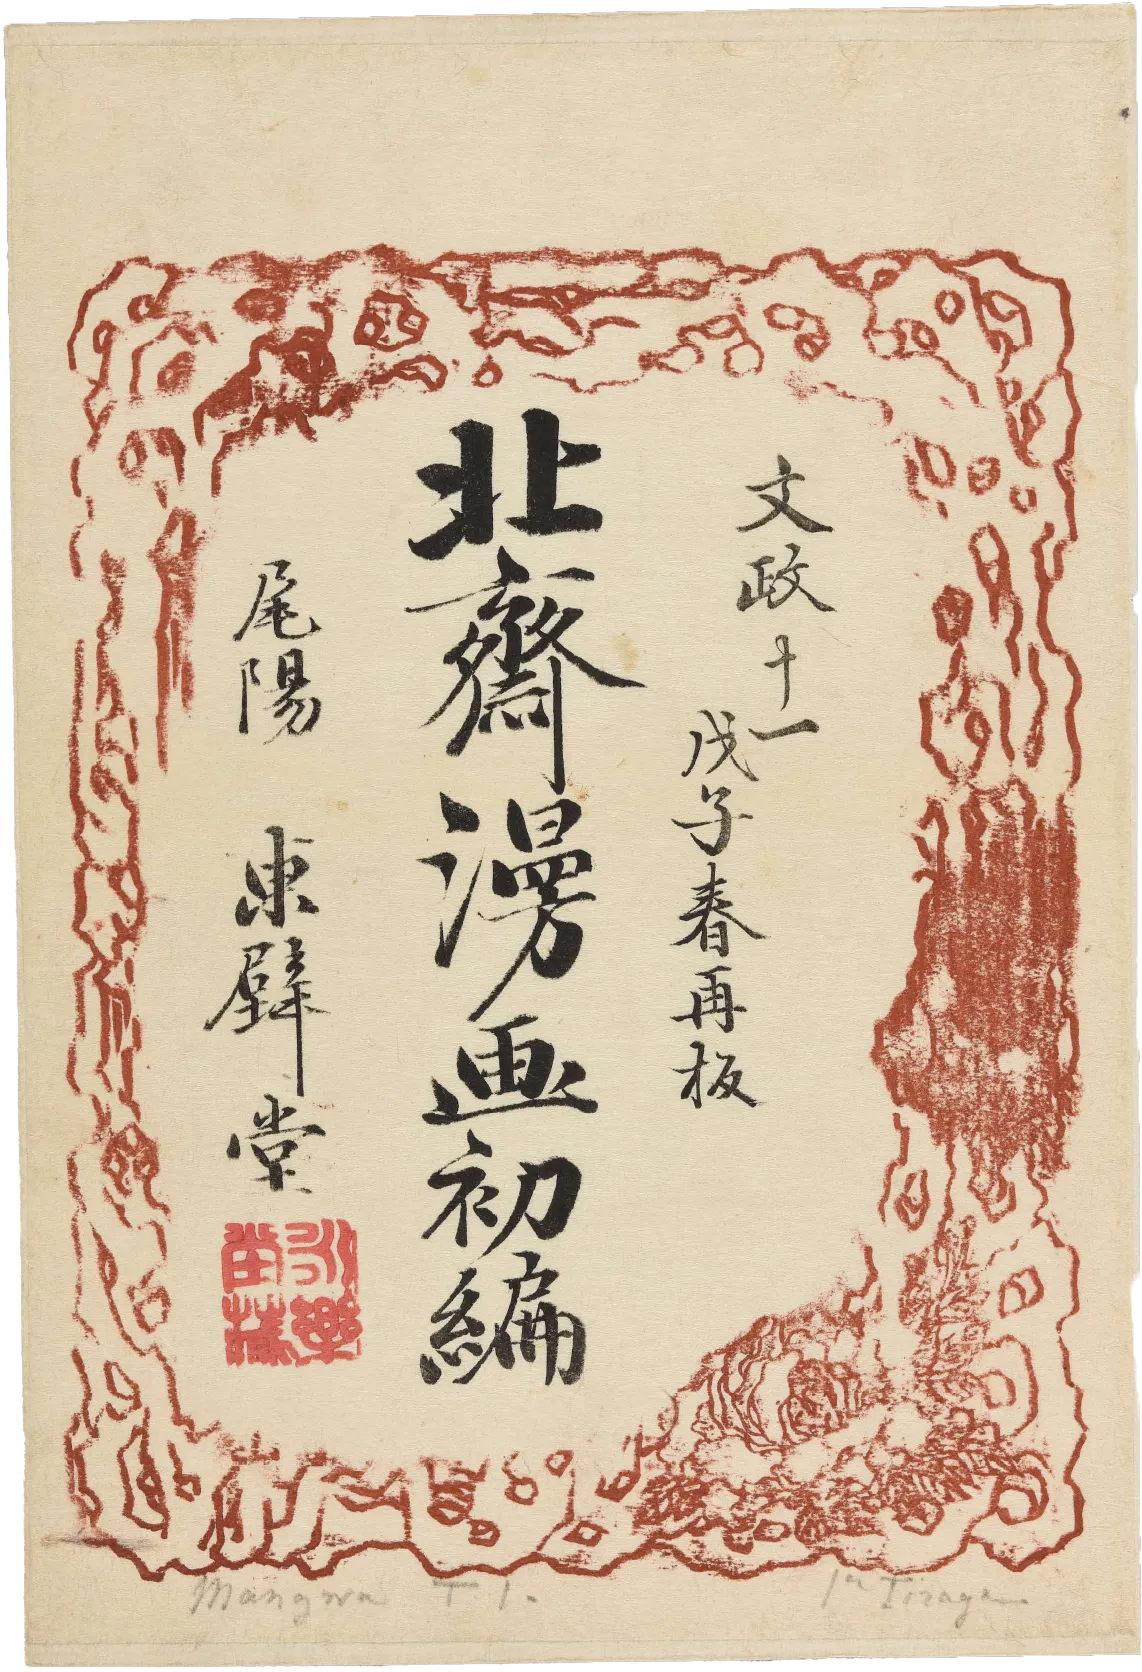 文政十一
戊子春再板
北齋漫画初編
尾陽 東壁堂
永樂
Mangwa T. 1.
1er Tirage